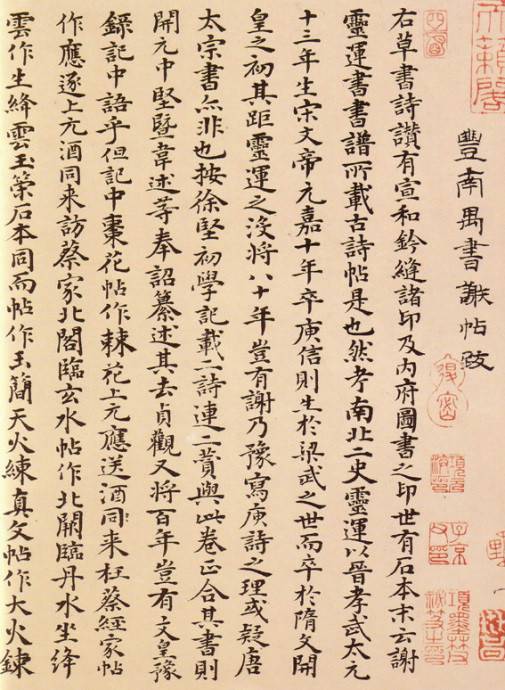 豐南禺書謝帖
右草書詩讚有宣和鈐縫諸印及內府圖書之印世有石本末云謝
靈運書書譜所載古詩帖是也然考南北二史靈運以晉孝武太元
十三年生宋文帝元嘉十年卒庾信則生於梁武之世而卒於隋文開
皇之初其距靈運之沒將八十年豈有謝乃豫寫庾詩之理或疑唐
太宗書亦非也按徐堅初學記載二詩連二贊與此卷正合其書則
開元中堅暨韋述等奉詔纂述其去貞觀又將百年豈有文皇豫
錄記中語乎但記中棗花帖作棘花上元應送酒同来枉蔡經家帖
作應逐上元酒同来訪蔡家北閣臨玄水帖作北闕臨丹水坐絳
雲作生絳雲玉策石本同而帖作玉簡天火練真文帖作大火鍊
天籟閣